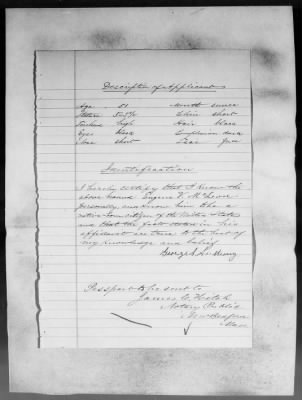 Description of Applicant
Age 51 Mouth
Stature Chin short
Forehead high Hair black
Eyes black Complexion dark
Nose short Face
Identification
I hereby certify that I know the
above named Eugene V.
personally, and know him to be a
native born citizen of the United States
and that the facts stated in his
affidavit are true to the best of
my knowledge and belief
George
Passport to be sent to
James
Notary Public
New Bedford
Mass